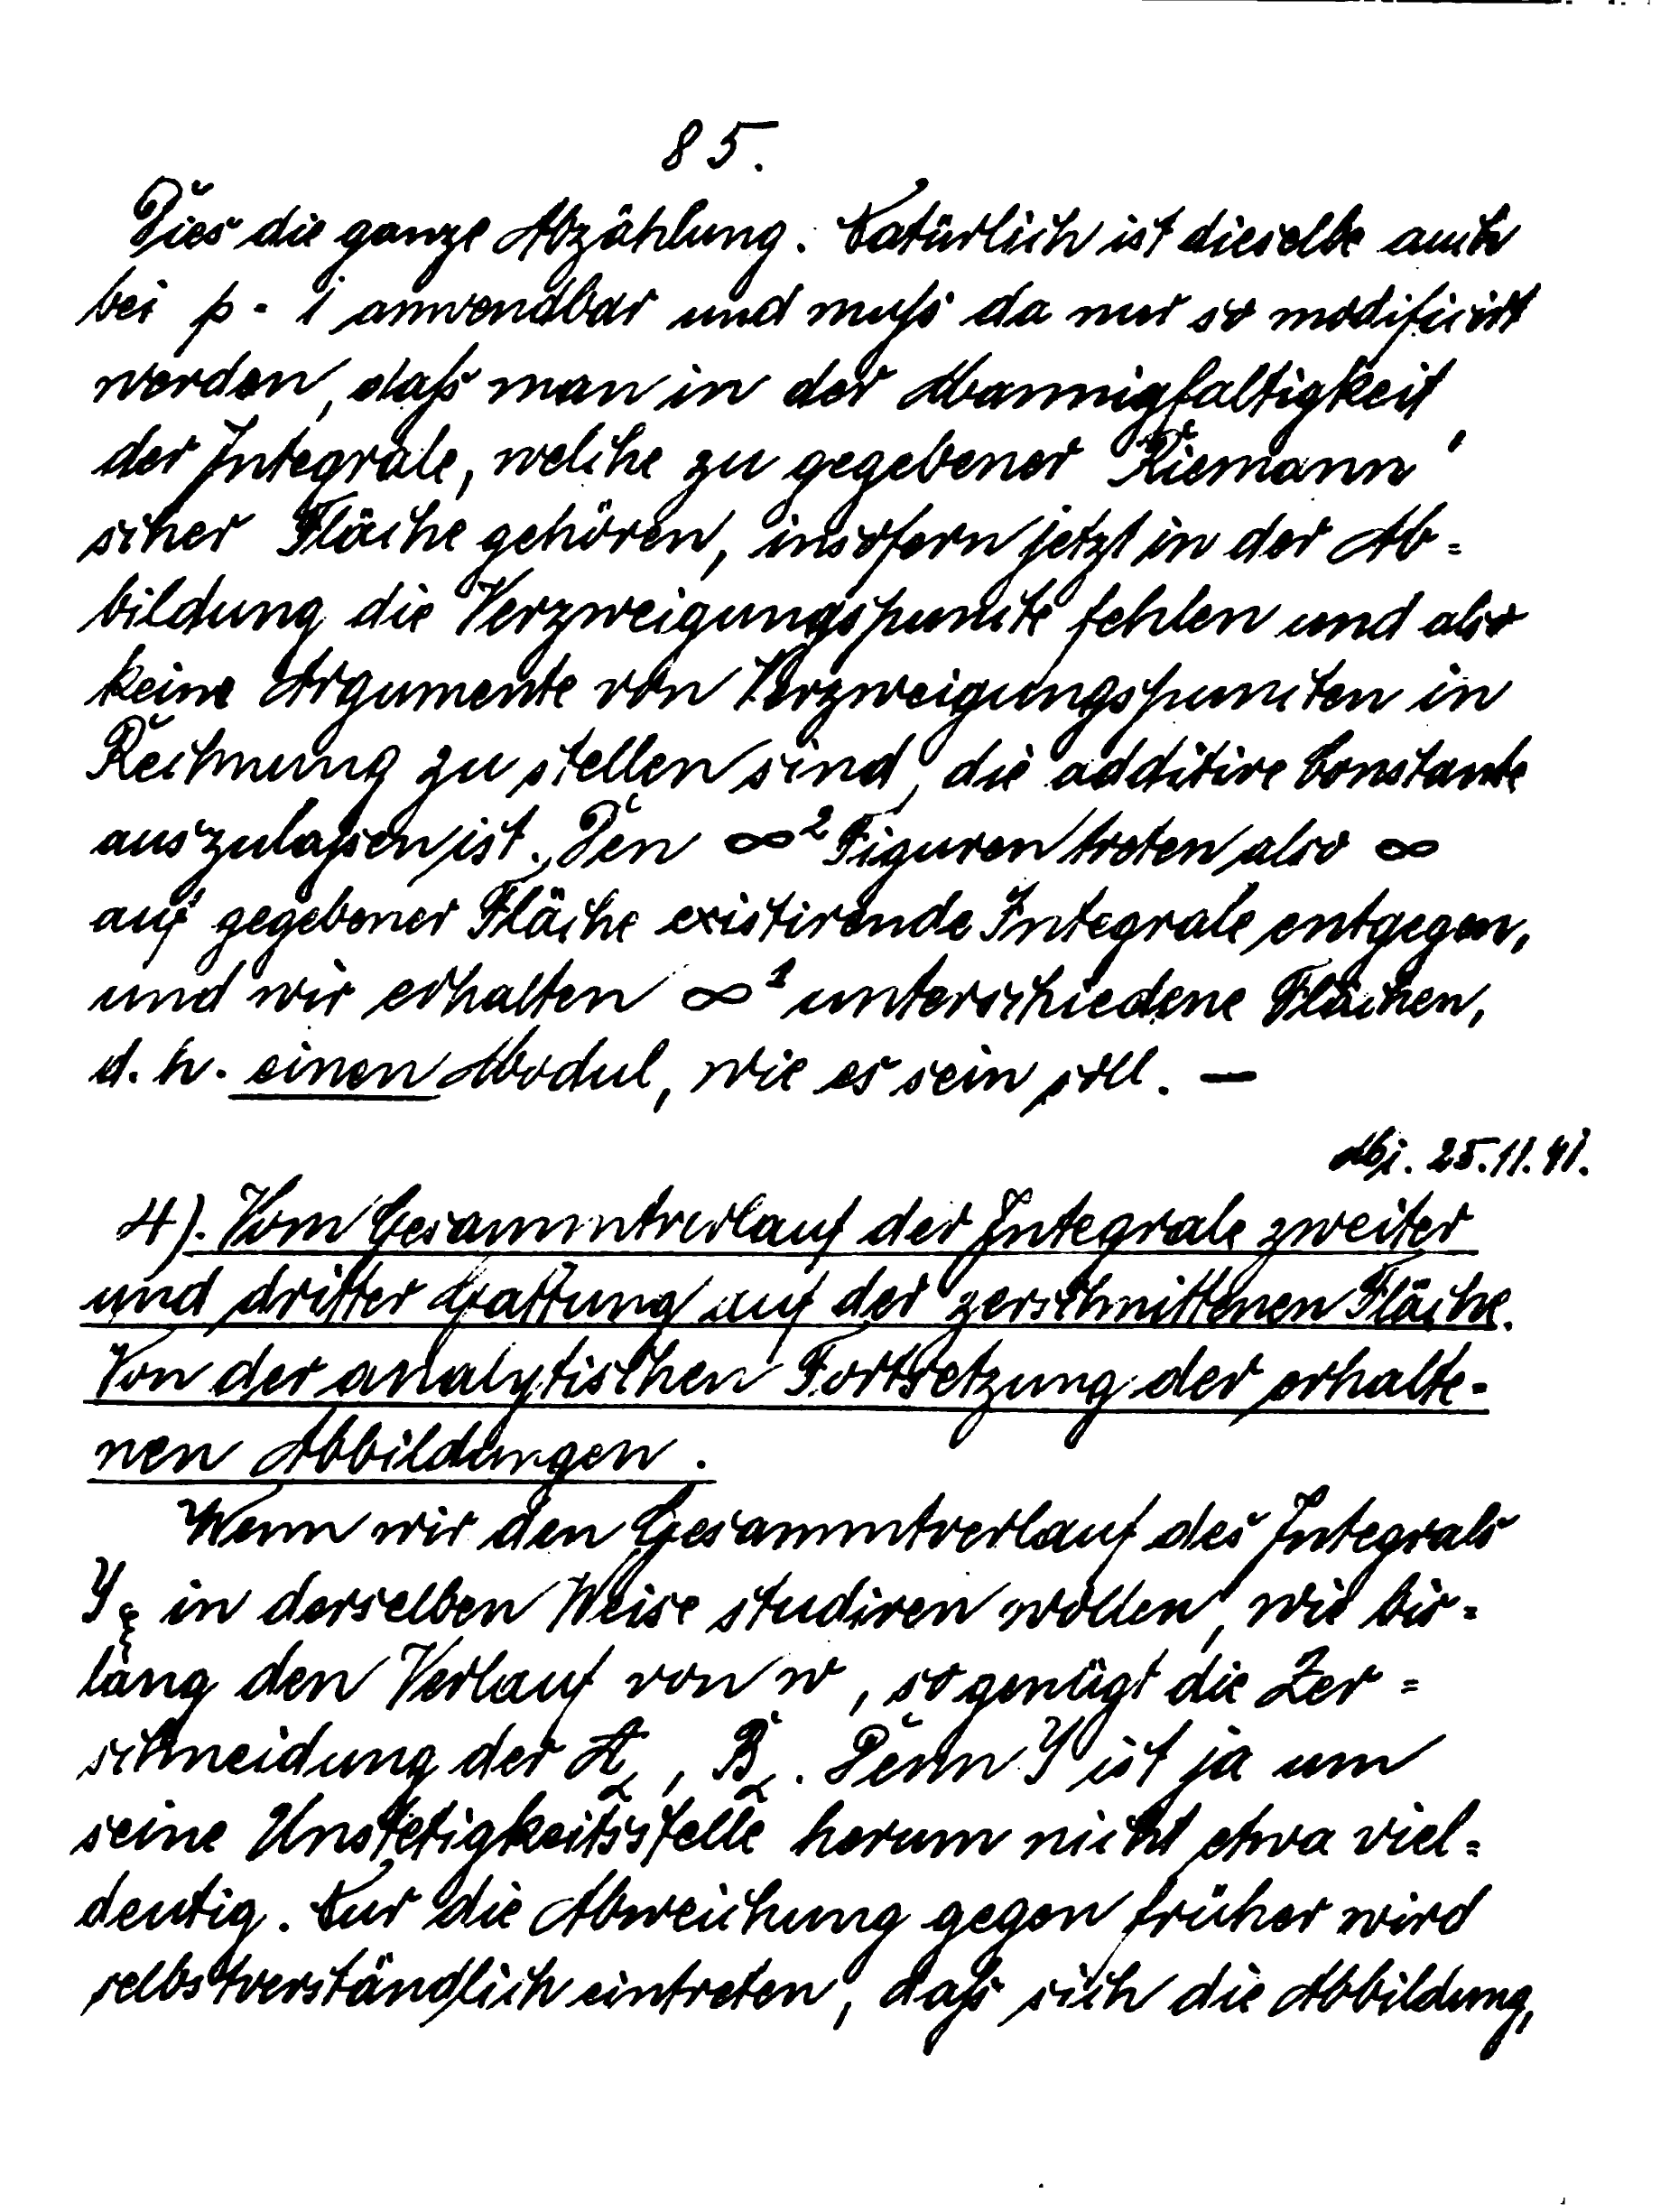 85.
Dies die ganze Abzählung. Natürlich ist dieselbe auch
bei p = 1 anwendbar und muß da nur so modificirt
werden, daß man in der Mannigfaltigkeit
der Integrale, welche zu gegebener Riemann'
scher Fläche gehören, insofern jetzt in der Ab=
bildung die Verzweigungspuncte fehlen und also
keine Argumente von Verzweigungspuncten in
Rechnung zu stellen sind, die additive Constante
auszulaßen ist. Den ∞² Figuren treten also ∞
auf gegebener Fläche existirende Integrale entgegen,
und wir erhalten ∞¹ unterschiedene Flächen,
d. h. einen Modul, wie es sein soll. —
Mi. 25.11.91.
4). Vom Gesammtverlauf der Integrale zweiter
und dritter Gattung auf der zerschnittenen Fläche.
Von der analytischen Fortsetzung der erhalte=
nen Abbildungen.
Wenn wir den Gesammtverlauf des Integrals
Y_ξ in derselben Weise studiren wollen, wie bis=
lang den Verlauf von w, so genügt die Zer=
schneidung der A_α, B_α. Denn Y ist ja um
seine Unstetigkeitsstelle herum nicht etwa viel=
deutig. Nur die Abweichung gegen früher wird
selbstverständlich eintreten, daß sich die Abbildung,